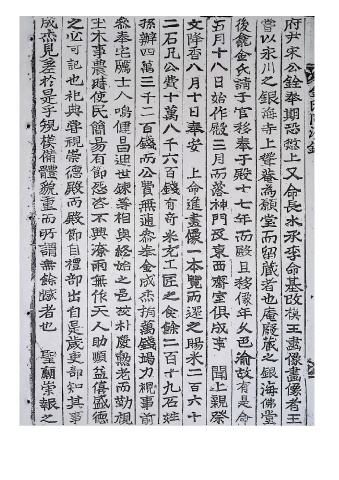 府尹宋公銓奉期恐後上又命長水丞李命基改模王畵像畵像者王
嘗以永川之銀海寺上聖菴爲願堂而留藏者也庵廢藏之銀海佛堂
後龕金氏請于官移奉于殿十七年而殿且移像年久色渝故有是命
五月十八日始作殿三月而落神門及東西齋室俱成事 聞上親祭
文降香八月十日奉安 上命進畵像一本覽而還之賜米二百六十
二石凡公費十萬八千六百錢有奇米充工匠之食餘二百十九石姓
孫辦四萬三千二百錢而公費無逋叅奉金成杰捐萬錢竭力視事前
叅奉宅麟士人鳴健昌迪世鍊等相與終始之邑故朴慶勳老而勤視
土木事農時使民簡易有節怨咨不興潦雨無作天人助順益僖盛德
之公可記也祀典嘗視崇德殿而殿節自禮部出自是歲吏部知其事
成杰見差於是乎規模備體貌重而所謂無餘憾者也 聖廟崇報之